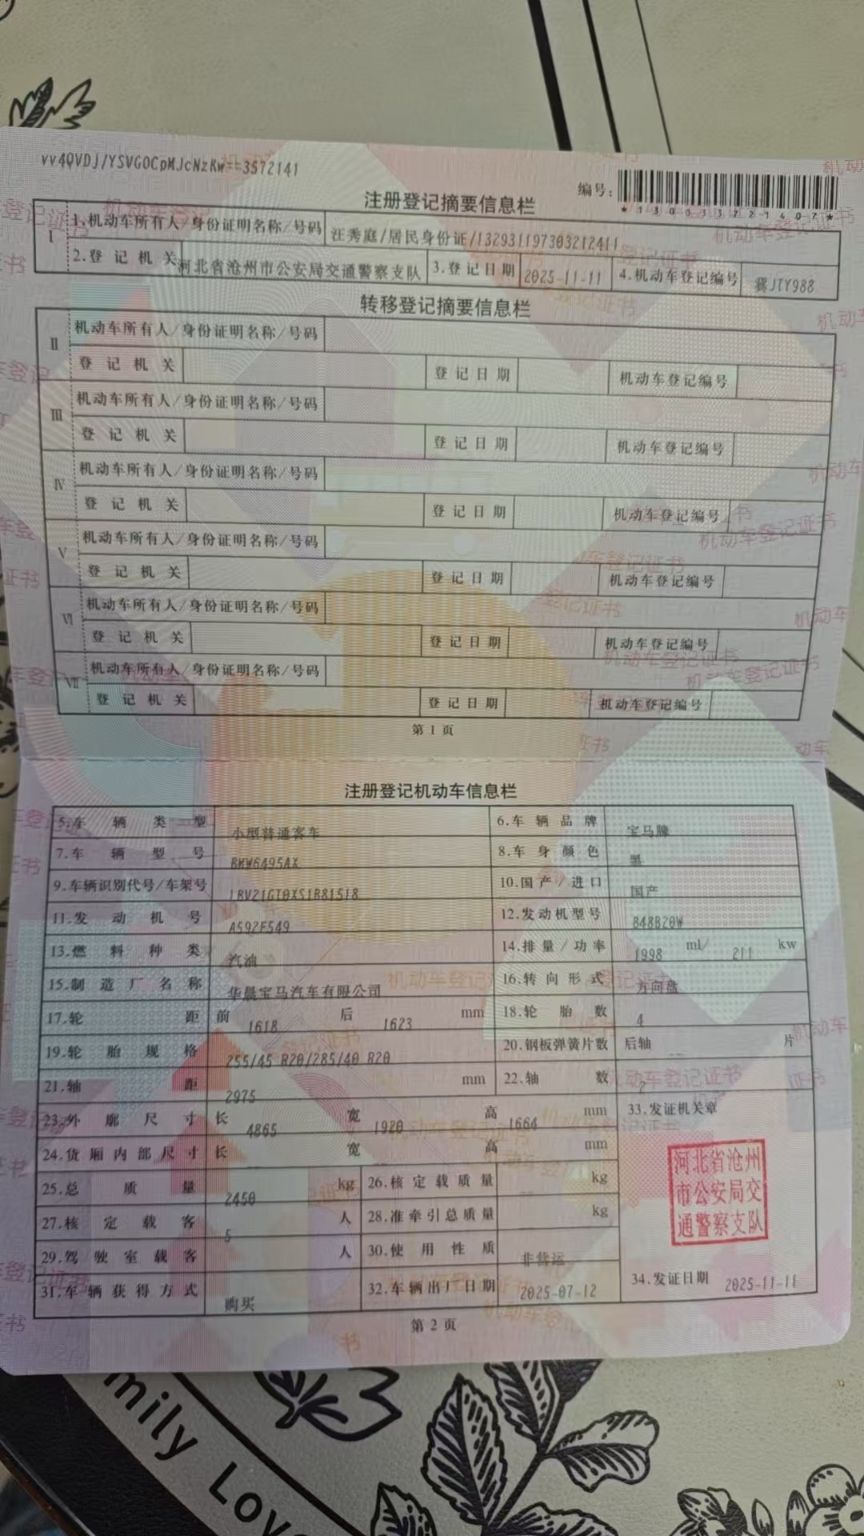 vv4QVDJ/YSVGOCpMJcNzRw==3572141
注册登记摘要信息栏 编号:
I 1.机动车所有人/身份证明名称/号码 汪秀庭/居民身份证/132931197303212411
2.登记机关 河北省沧州市公安局交通警察支队 3.登记日期 2025-11-11 4.机动车登记编号 冀JTY988
转移登记摘要信息栏
II 机动车所有人/身份证明名称/号码
登记机关 登记日期 机动车登记编号
III 机动车所有人/身份证明名称/号码
登记机关 登记日期 机动车登记编号
IV 机动车所有人/身份证明名称/号码
登记机关 登记日期 机动车登记编号
V 机动车所有人/身份证明名称/号码
登记机关 登记日期 机动车登记编号
VI 机动车所有人/身份证明名称/号码
登记机关 登记日期 机动车登记编号
VII 机动车所有人/身份证明名称/号码
登记机关 登记日期 机动车登记编号
第1页
注册登记机动车信息栏
5.车辆类型 小型普通客车 6.车辆品牌 宝马牌
7.车辆型号 BMW6495AX 8.车身颜色 黑
9.车辆识别代号/车架号 10.国产/进口 国产
11.发动机号 A592F549 12.发动机型号 B48B20W
13.燃料种类 汽油 14.排量/功率 1998 ml/ 211 kw
15.制造厂名称 华晨宝马汽车有限公司 16.转向形式 方向盘
17.轮距 前 1618 后 1623 mm 18.轮胎数 4
19.轮胎规格 255/45 R20/285/40 R20 20.钢板弹簧片数 后轴 -- 片
21.轴距 2975 mm 22.轴数 2
23.外廓尺寸 长 4865 宽 1920 高 1664 mm 33.发证机关章
24.货厢内部尺寸 长 宽 高 mm
25.总质量 2450 kg 26.核定载质量 kg
27.核定载客 5 人 28.准牵引总质量 kg
29.驾驶室载客 人 30.使用性质 非营运
31.车辆获得方式 购买 32.车辆出厂日期 2025-07-12 34.发证日期 2025-11-11
河北省沧州
市公安局交
通警察支队
第2页
mily Love